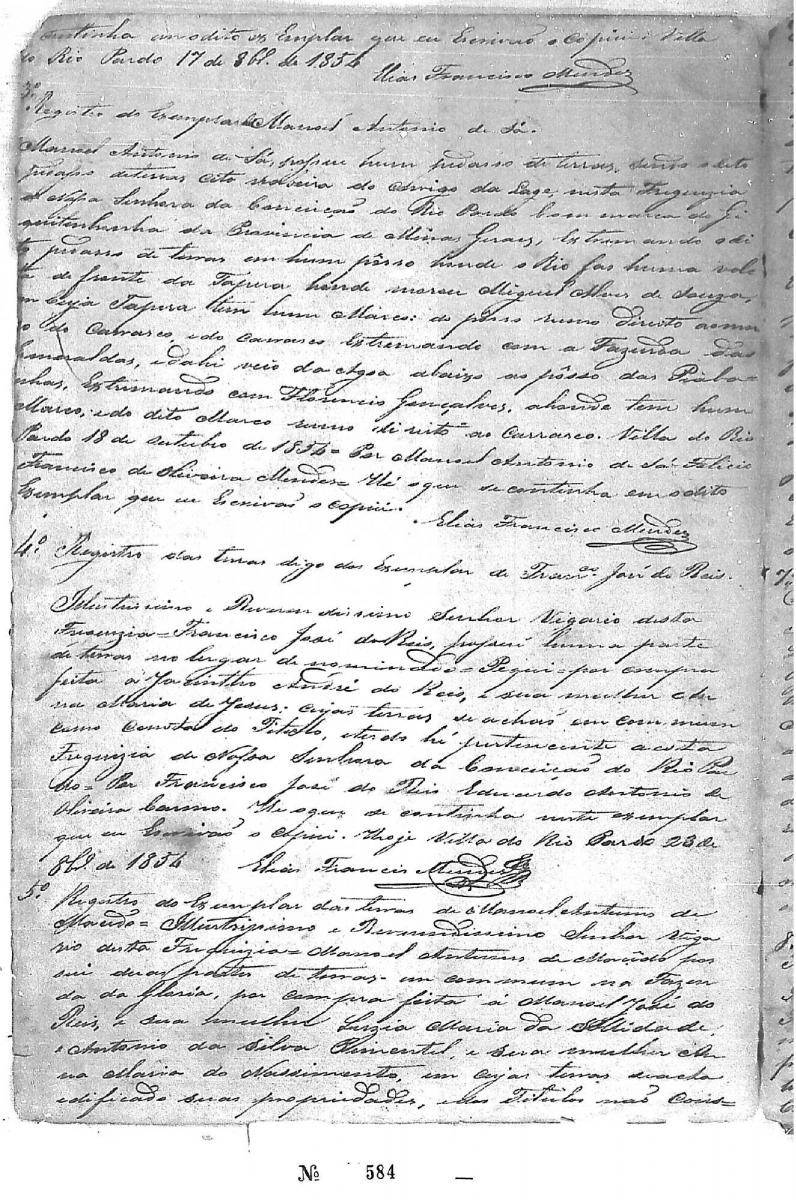 continha in odito ex Emplar que eu Escrivaõ o Copiei Villa
do Rio Pardo 17 de 8bṛ. de 1854
Elias Francisco Mendez
3º
Registro do Exemplar de Manoel Antonio de Sá.
Manoel Antonio de Sá, possue hum pedasso de terras, sendo o dito
pedasso deterras cito na beira do Corrigo da Lage, nesta Freguizia
de Nossa Senhora da Conceicaõ do Rio Pardo Commarca de Gi
quitinhonha da Provincia de Minas Geraes, Extremando o di
to pedasso de terras em hum pôsso honde o Rio fas huma vol
ta de frente da Tapera honde morou Miguel Alves de Souza,
em Cuja Tapera tem hum Marco: do pôsso rumo direito aomar
o do Carrasco, edo Carrasco Extremando com a Fazenda das
Esmeraldas, e dahi veio da Agoa abaixo ao pôsso das Piaba=
nhas, Extremando com Florencio Gonçalves, ahonde tem hum
Marco, edo dito Marco rumo direito ao Carrasco. Villa do Rio
Pardo 18 de outubro de 1854= Por Manoel Antonio de Sá= Felicio
Francisco de Oliveira Mendes= Hé oque se continha em odito
Exemplar que eu Escrivaõ o copiei.
Elias Francisco Mendez
4º. Registro das terras digo dos Exemplar de Francᶜᵒ. José do Reis.
Illustrissimo e Reverendissimo Senhor Vigario desta
Freguizia= Francisco José do Reis, possui huma parte
de terras no lugar de nominado= Pequi= por compra
feita á Jacintho André do Reis, e sua mulher An
na Maria de Jesus: cujas terras, se achaõ em commum
como Consta do Titulo, eterdo hé pertencente a esta
Freguizia de Nossa Senhora da Conceicaõ do Rio Par
do= Por Francisco José do Reis Eduardo Antonio de
Oliveira Carmo. He oque se continha neste exemplar
que eu Escrivaõ o Copiei. Hoje Villa do Rio Pardo 23 de
8bṛ. de 1854 Elias Francis Mendez
5º. Registro do Exemplar das terras de Manoel Antunes de
Macêdo= Illustrissimo e Reverendissimo Senhor Viga
rio desta Freguizia= Manoel Antunes de Macêdo pos
sui duas partes de terras= em commum na Fazen
da da Gloria, por compra feita á Manoel José do
Reis, e sua mulher Luzia Maria da
e Antonio da Silva Pimentel, e sua mulher An
na Maria do Nassimento, em cujas terras seacha
edificado suas propriedades, edos Titulos naõ Cons=
Nº 584 —